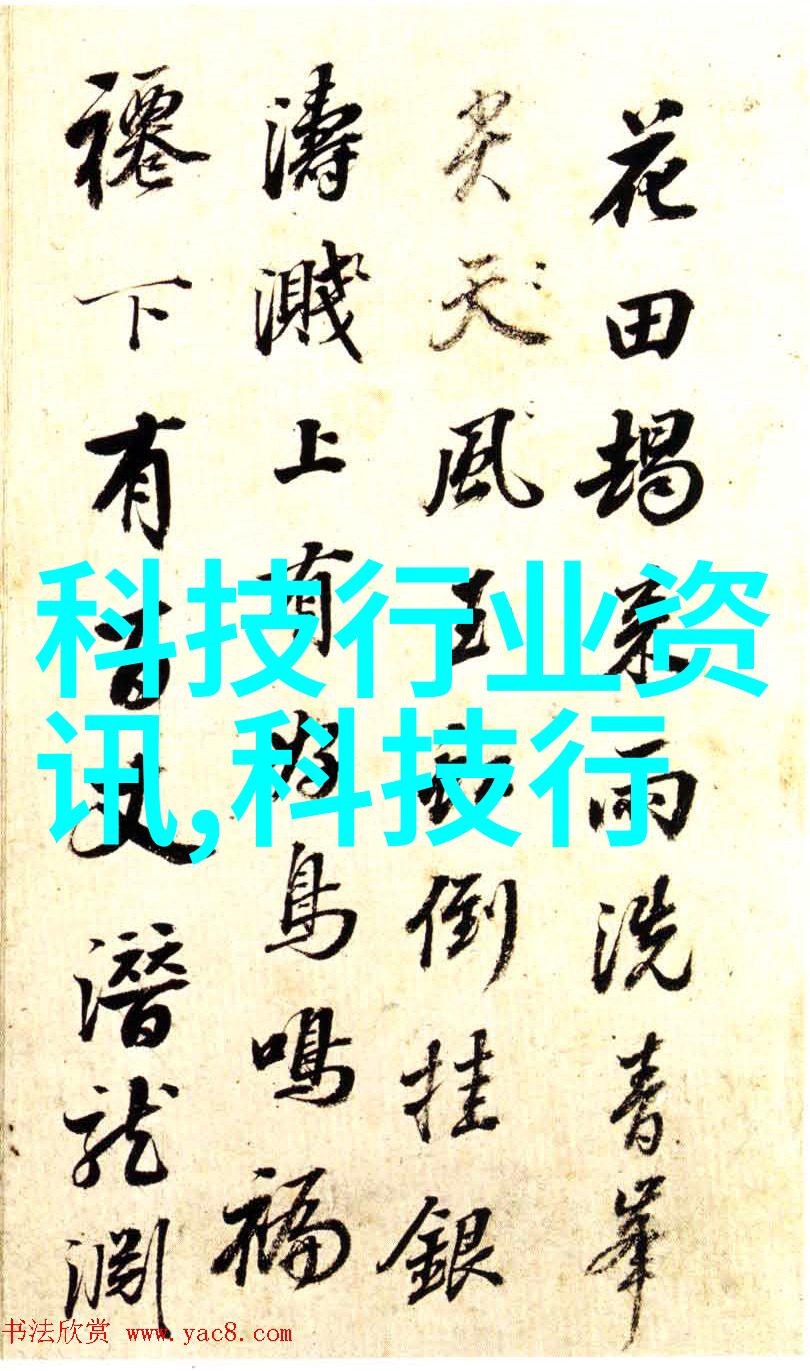 花田朅来雨洗青峯
天風玉倒挂銀
濤濺上有鳥鳴福
下有百丈潛龍淵
科技行业资
讯,科技行
书法欣赏 www.yac8.com